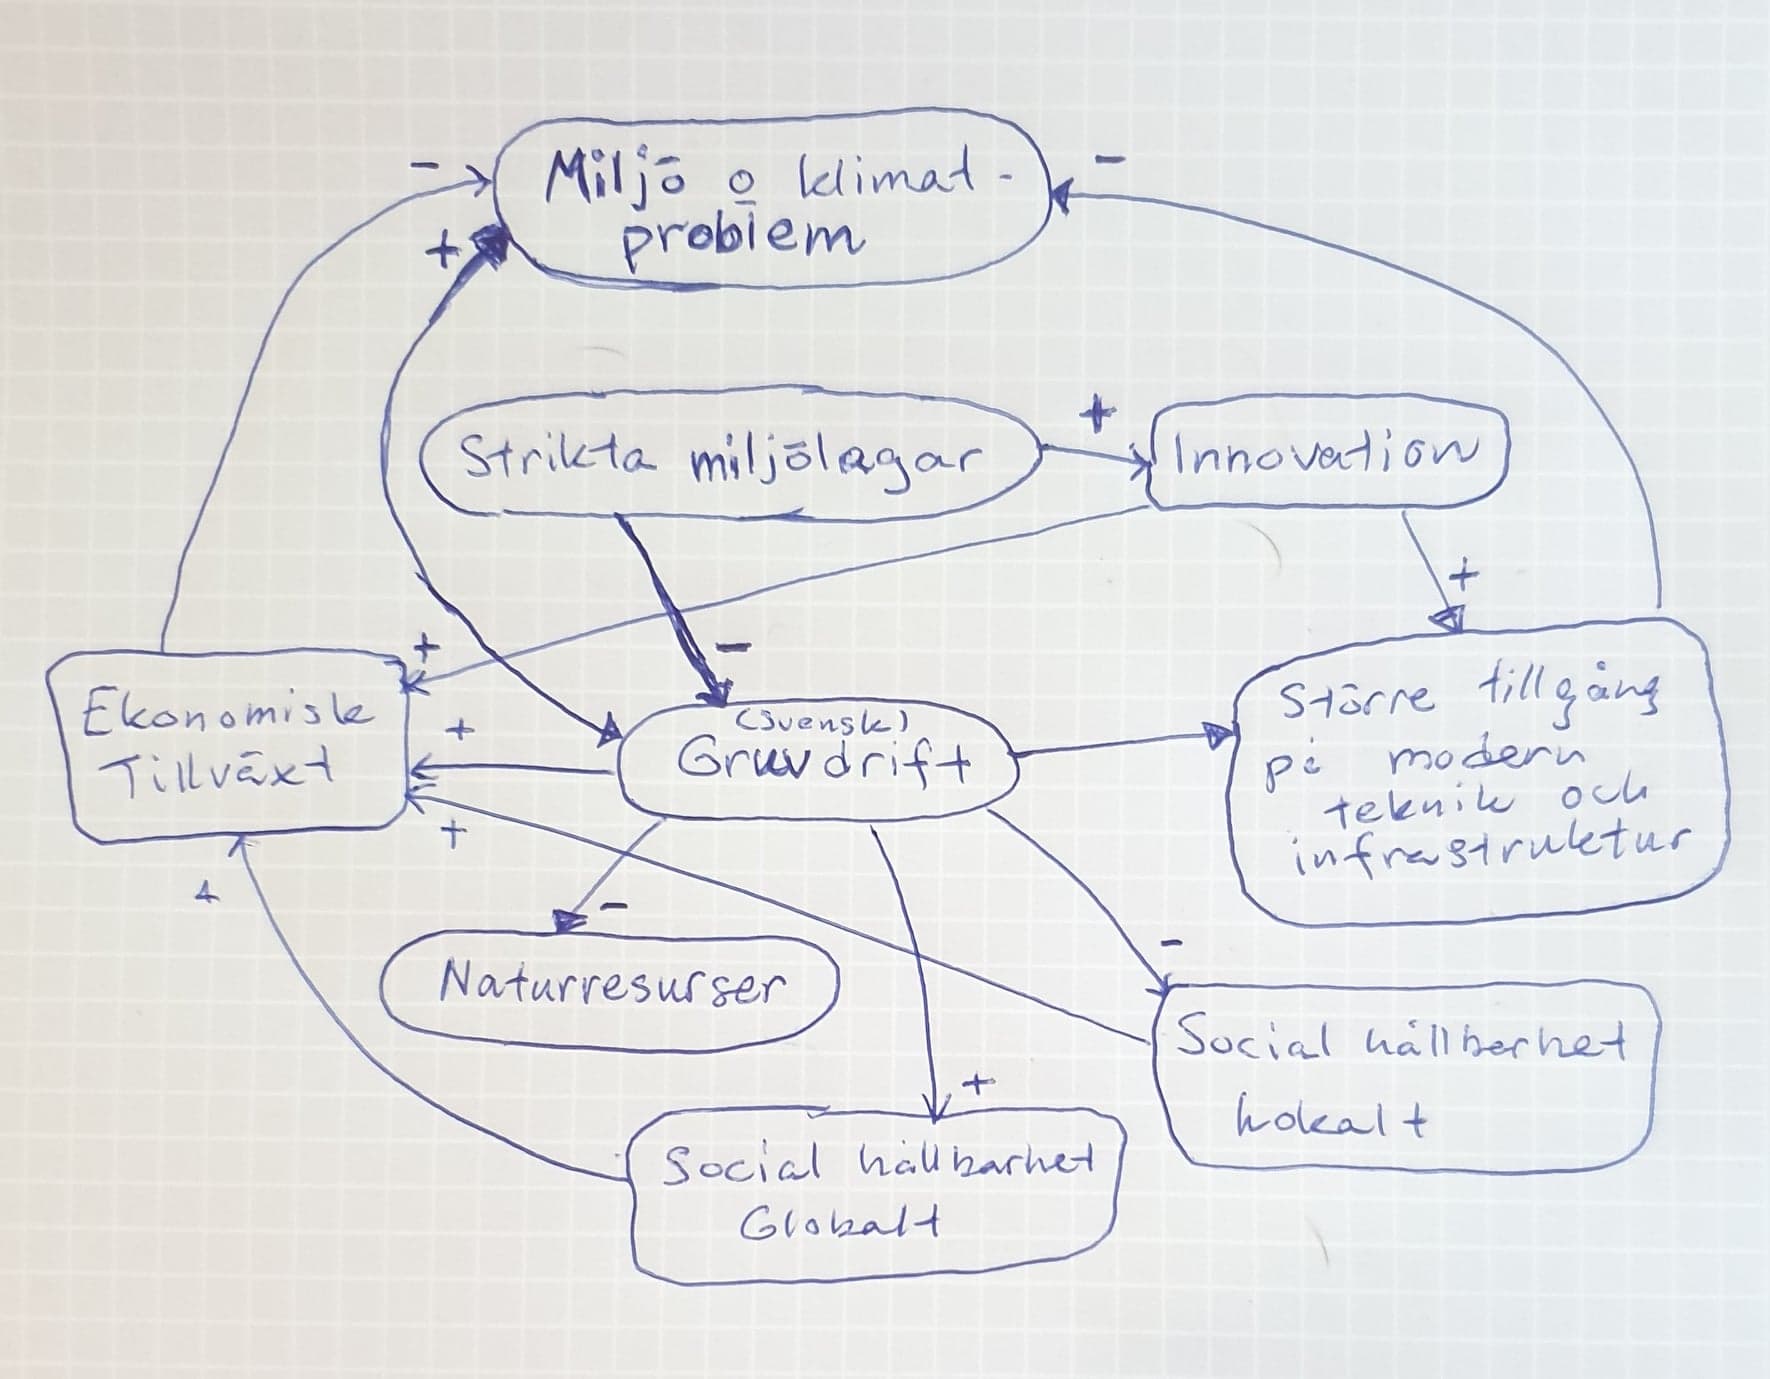 Miljö o klimat-
problem
-
+
-
Strikta miljölagar
+
Innovation
+
-
+
Ekonomisk
Tillväxt
+
+
+
(Svensk)
Gruvdrift
Större tillgång
på modern
teknik och
infrastruktur
-
Naturresurser
-
Social hållbarhet
Lokalt
+
Social hållbarhet
Globalt